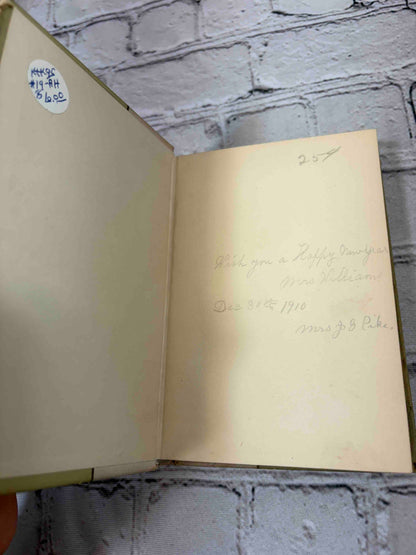 KKK95
#19-RH
$6.00
25¢
Wish you a Happy New Year
Mrs William
Dec 30th 1910
Mrs J B Pike.